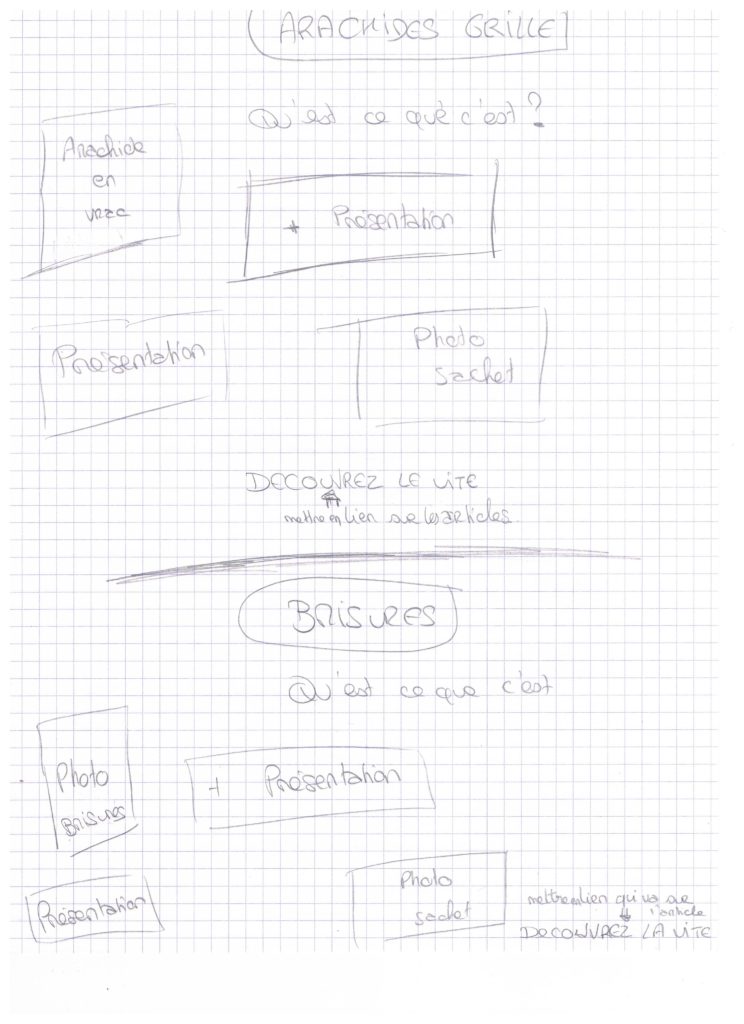 ARACHIDES GRILLE
Qu'est ce que c'est ?
Arachide
en
vrac
+ Présentation
Présentation
Photo
sachet
DECOUVREZ LE VITE
mettre en lien sur les articles
BRISURES
Qu'est ce que c'est
Photo
BRISURES
+ Présentation
Présentation
Photo
sachet
mettre en lien qui va sur
l'article
DECOUVREZ LA VITE